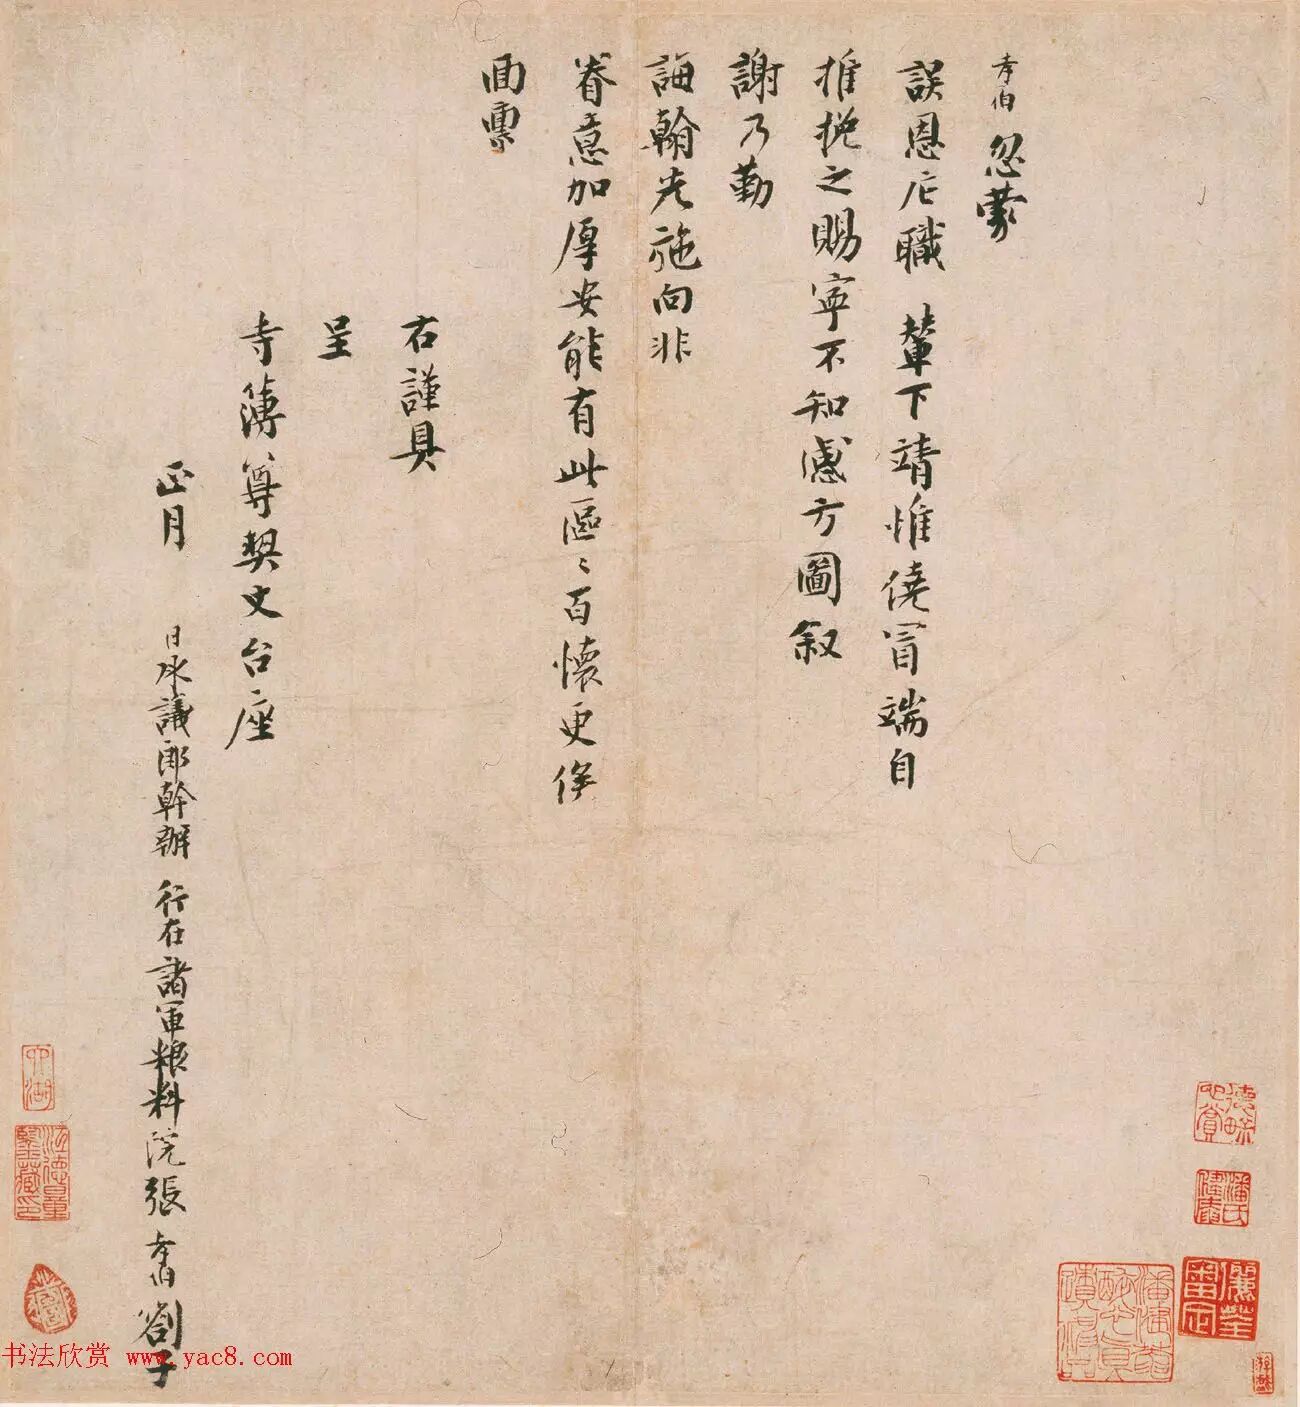 孝伯忽蒙
誤恩庀職 輦下靖惟僥冒端自
推挽之賜寧不知感方圖叙
謝乃勤
誨翰先施向非
眷意加厚安能有此區〻百懷更俟
面稟
右謹具
呈
寺簿尊契丈台座
正月 日承議郎幹辦 行在諸軍粮料院張孝伯劄子
六湖
潘氏
書法欣赏 www.yac8.com